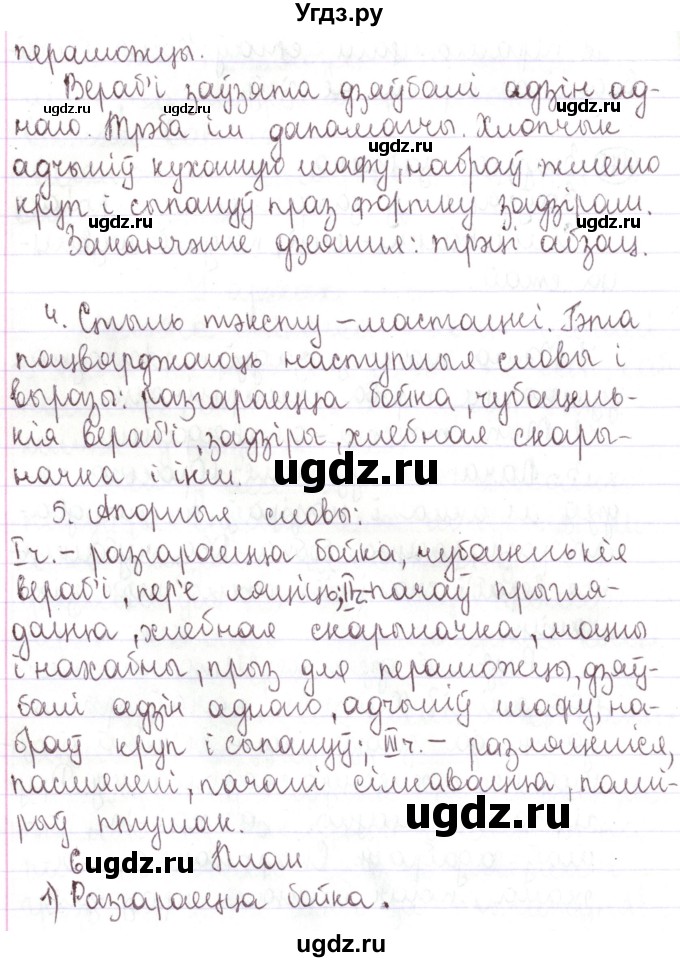 Угдз.ру
пераможцы.
Вераб'і заўзята дзяўбалі адзін ад-
наго. Трэба ім дапамагчы. Хлопчык
адчыніў кухонную шафу, набраў жменю
круп і сыпануў праз фортку задзірам.
Заканчэнне дзеяння: трэці абзац.
4. Стыль тэксту – мастацкі. Гэта
пацвярджаюць наступныя словы і
выразы: разгараецца бойка, чубацень-
кія вераб'і, задзіры, хлебная скары-
начка і інш.
5. Апорныя словы:
I ч. – разгараецца бойка, чубаценькія
вераб'і, пер'е ляціць; II ч. – пачаў прыгля-
дацца, хлебная скарыначка, моцны
і нахабны, прыз для пераможцы, дзяў-
балі адзін аднаго, адчыніў шафу, на-
браў круп і сыпануў; III ч. – разляцеліся,
пасмялелі, пачалі сілкавацца, памі-
рыў птушак.
6. План
1) Разгараецца бойка.
ugdz.ru
ugdz.ru
ugdz.ru
ugdz.ru
ugdz.ru
ugdz.ru
ugdz.ru
ugdz.ru
ugdz.ru
ugdz.ru
ugdz.ru
ugdz.ru
ugdz.ru